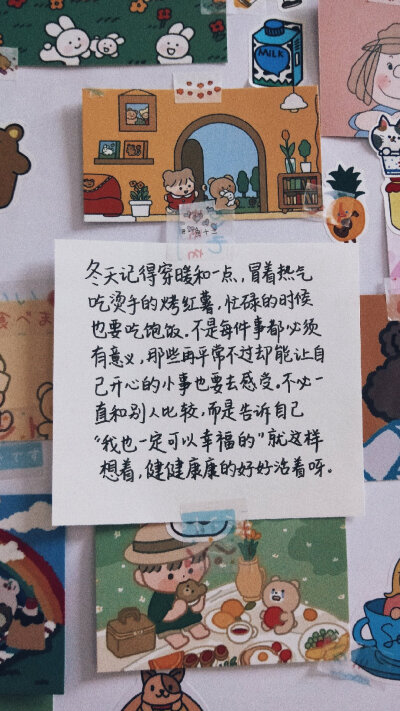 MILK
冬天记得穿暖和一点,冒着热气
吃烫手的烤红薯,忙碌的时候
也要吃饱饭.不是每件事都必须
有意义,那些再平常不过却能让自
己开心的小事也要去感受.不必一
直和别人比较,而是告诉自己
“我也一定可以幸福的”就这样
想着,健健康康的好好活着呀。
です